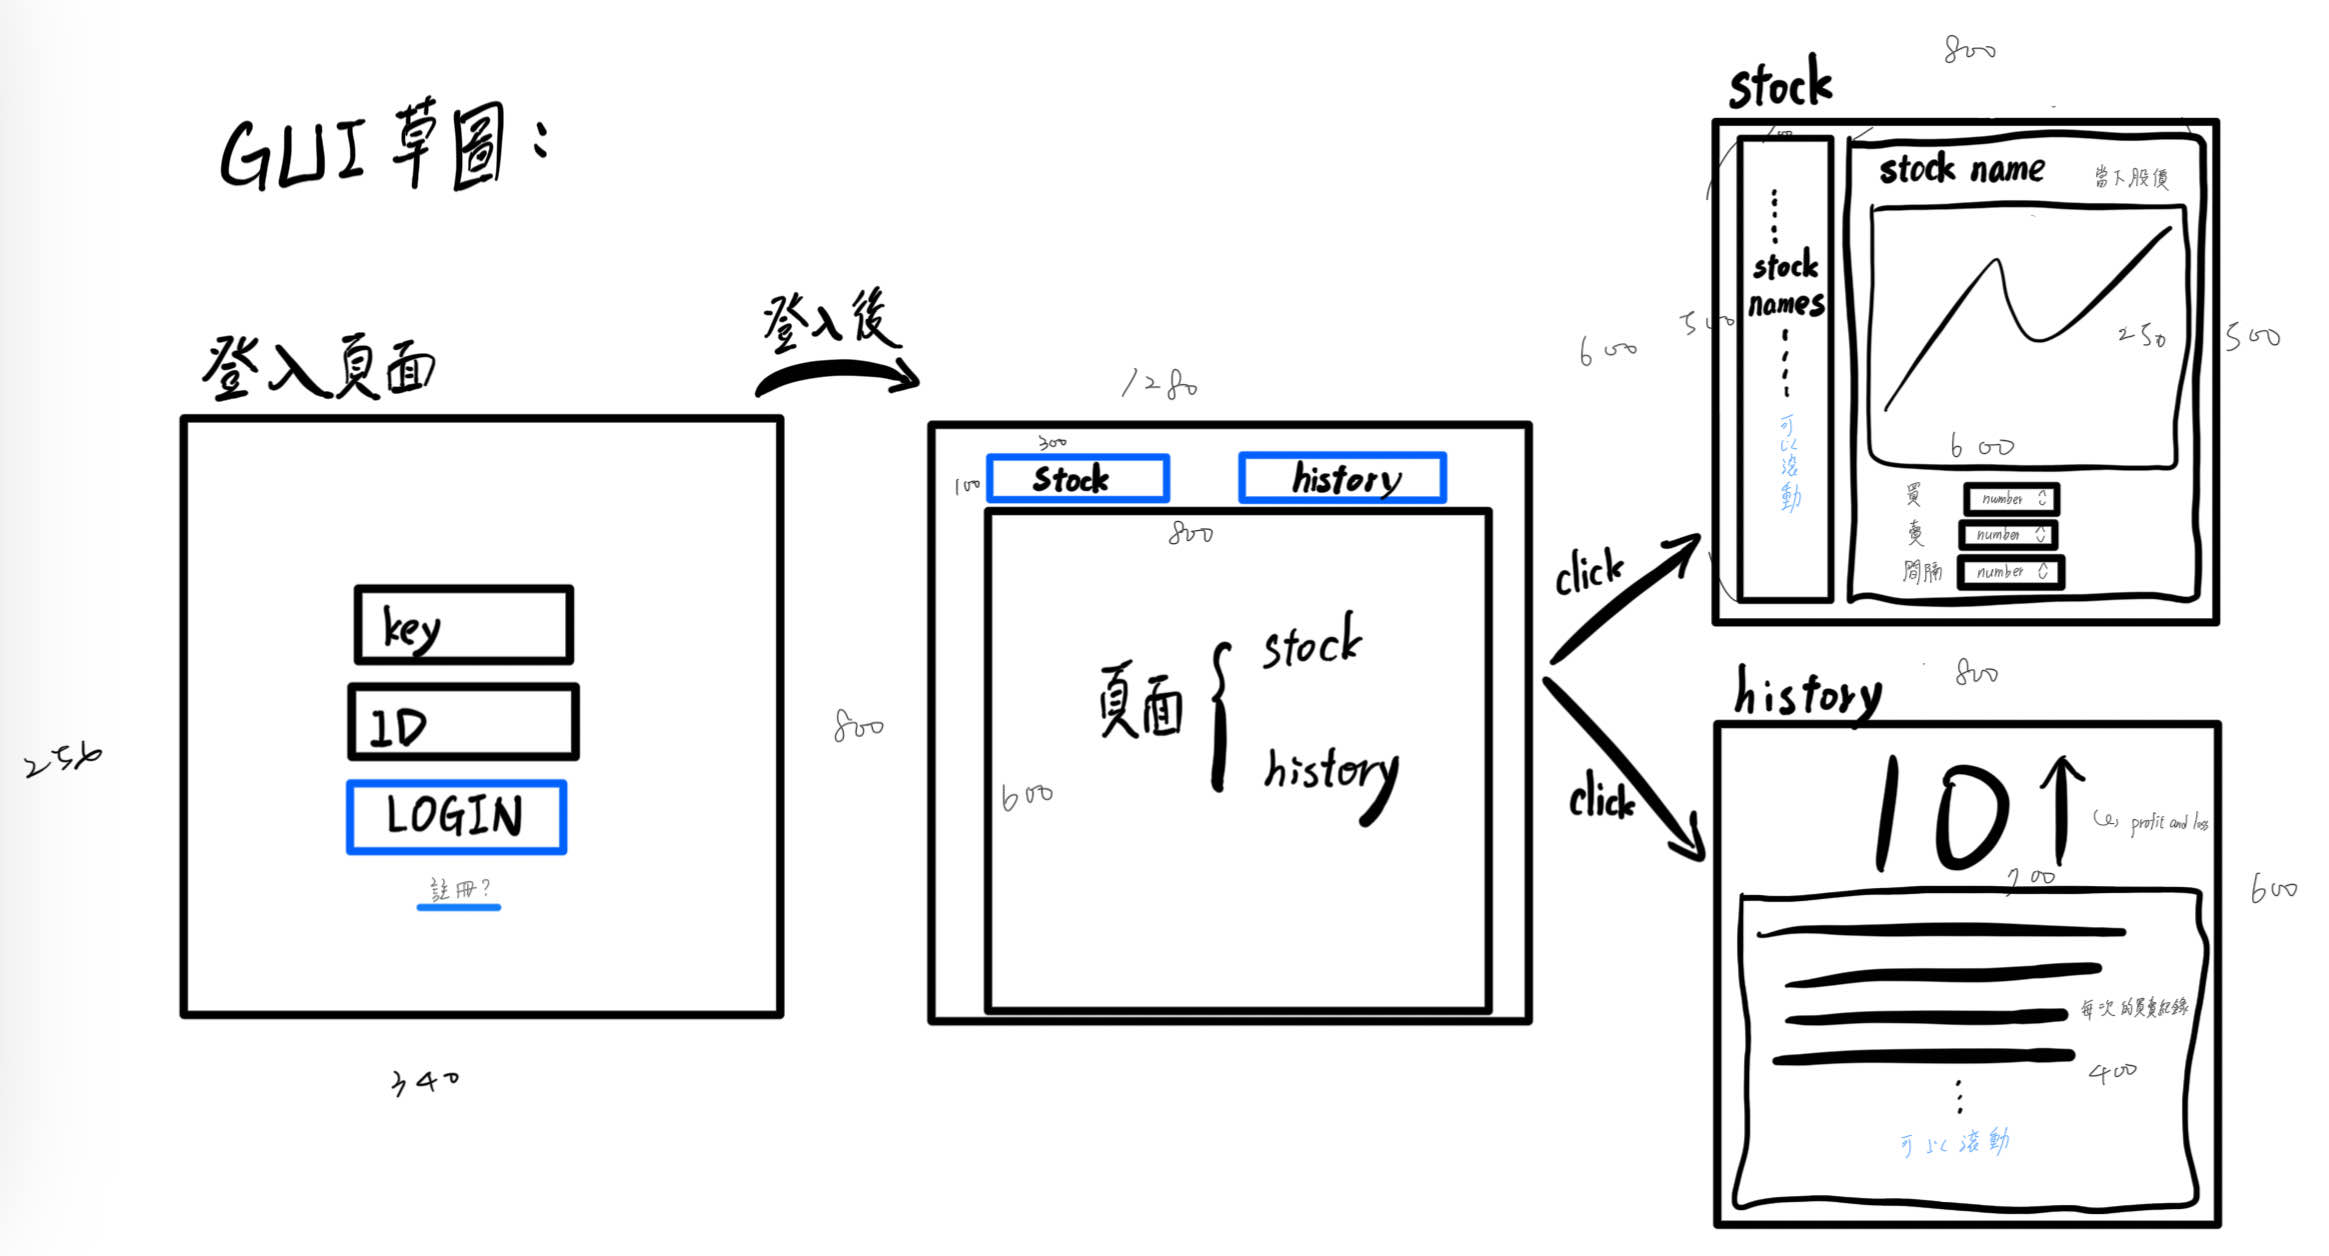 GUI草圖：
登入頁面
key
ID
LOGIN
註冊？
256
340
登入後
1280
800
300
100
stock
history
800
600
頁面
stock
history
click
click
stock
800
600
500
stock
names
可以滾動
stock name
當下股價
250
600
500
買 number
賣 number
間隔 number
history
800
600
10↑
profit and loss
700
每次的買賣紀錄
400
可以滾動